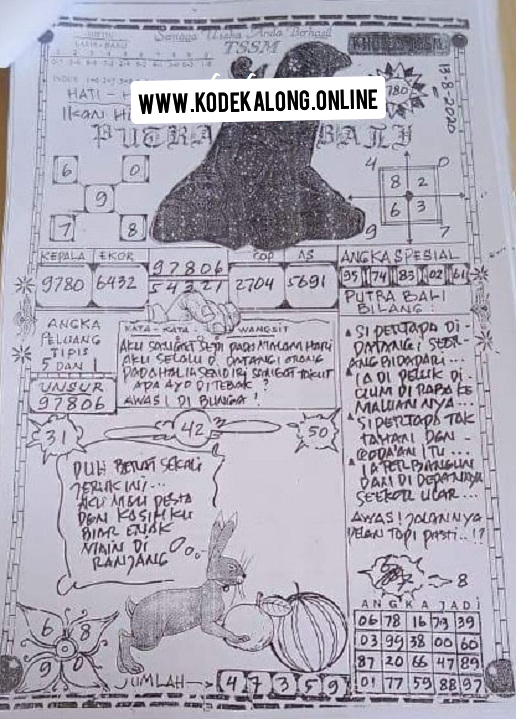 Semoga Usaha Anda Berhasil
TSSM
18-8-2020
HATI - H
IKAN HA
WWW.KODEKALONG.ONLINE
PUTRA BALI
780
6 0
9
7 8
4 0
8 2
6 3
9 7
KEPALA EKOR 97806 COP AS
9780 6432 54321 2704 5691
ANGKA SPESIAL
95 74 83 02 61
PUTRA BALI
BILANG :
ANGKA
PELUANG
TIPIS
5 DAN 1
UNSUR
97806
KATA - KATA WANGSIT
AKU SANGAT SEPI PADA MALAM HARI
AKU SELALU DI DATANGI ORANG
PADAHAL IA SENDIRI SANGAT TAKUT
APA AYO DITEBAK ?
AWAS ! DI BUNGA !
SI PERTAPA DI-
DATANGI SEOR-
ANG BIDADARI...
IA DI PELUK DI-
CIUM DI RABA KE
MALUANNYA...
SI PERTAPA TAK
TAHAN DEN-
GODA'AN ITU...
IA TERBANGUN
DARI DI DEPANNYA
SEEKOR ULAR...
AWAS ! JALANNYA
PELAN TAPI PASTI..!?
31 42 50
DUH BERAT SEKALI
JERUK INI...
AKU MAU PESTA
DGN KASIHKU
BIAR ENAK
MAIN DI
RANJANG
8
ANGKA JADI
06 78 16 73 39
03 99 38 00 60
87 20 66 47 89
01 77 59 88 97
6 8
9 0
JUMLAH 4 7 3 5 9